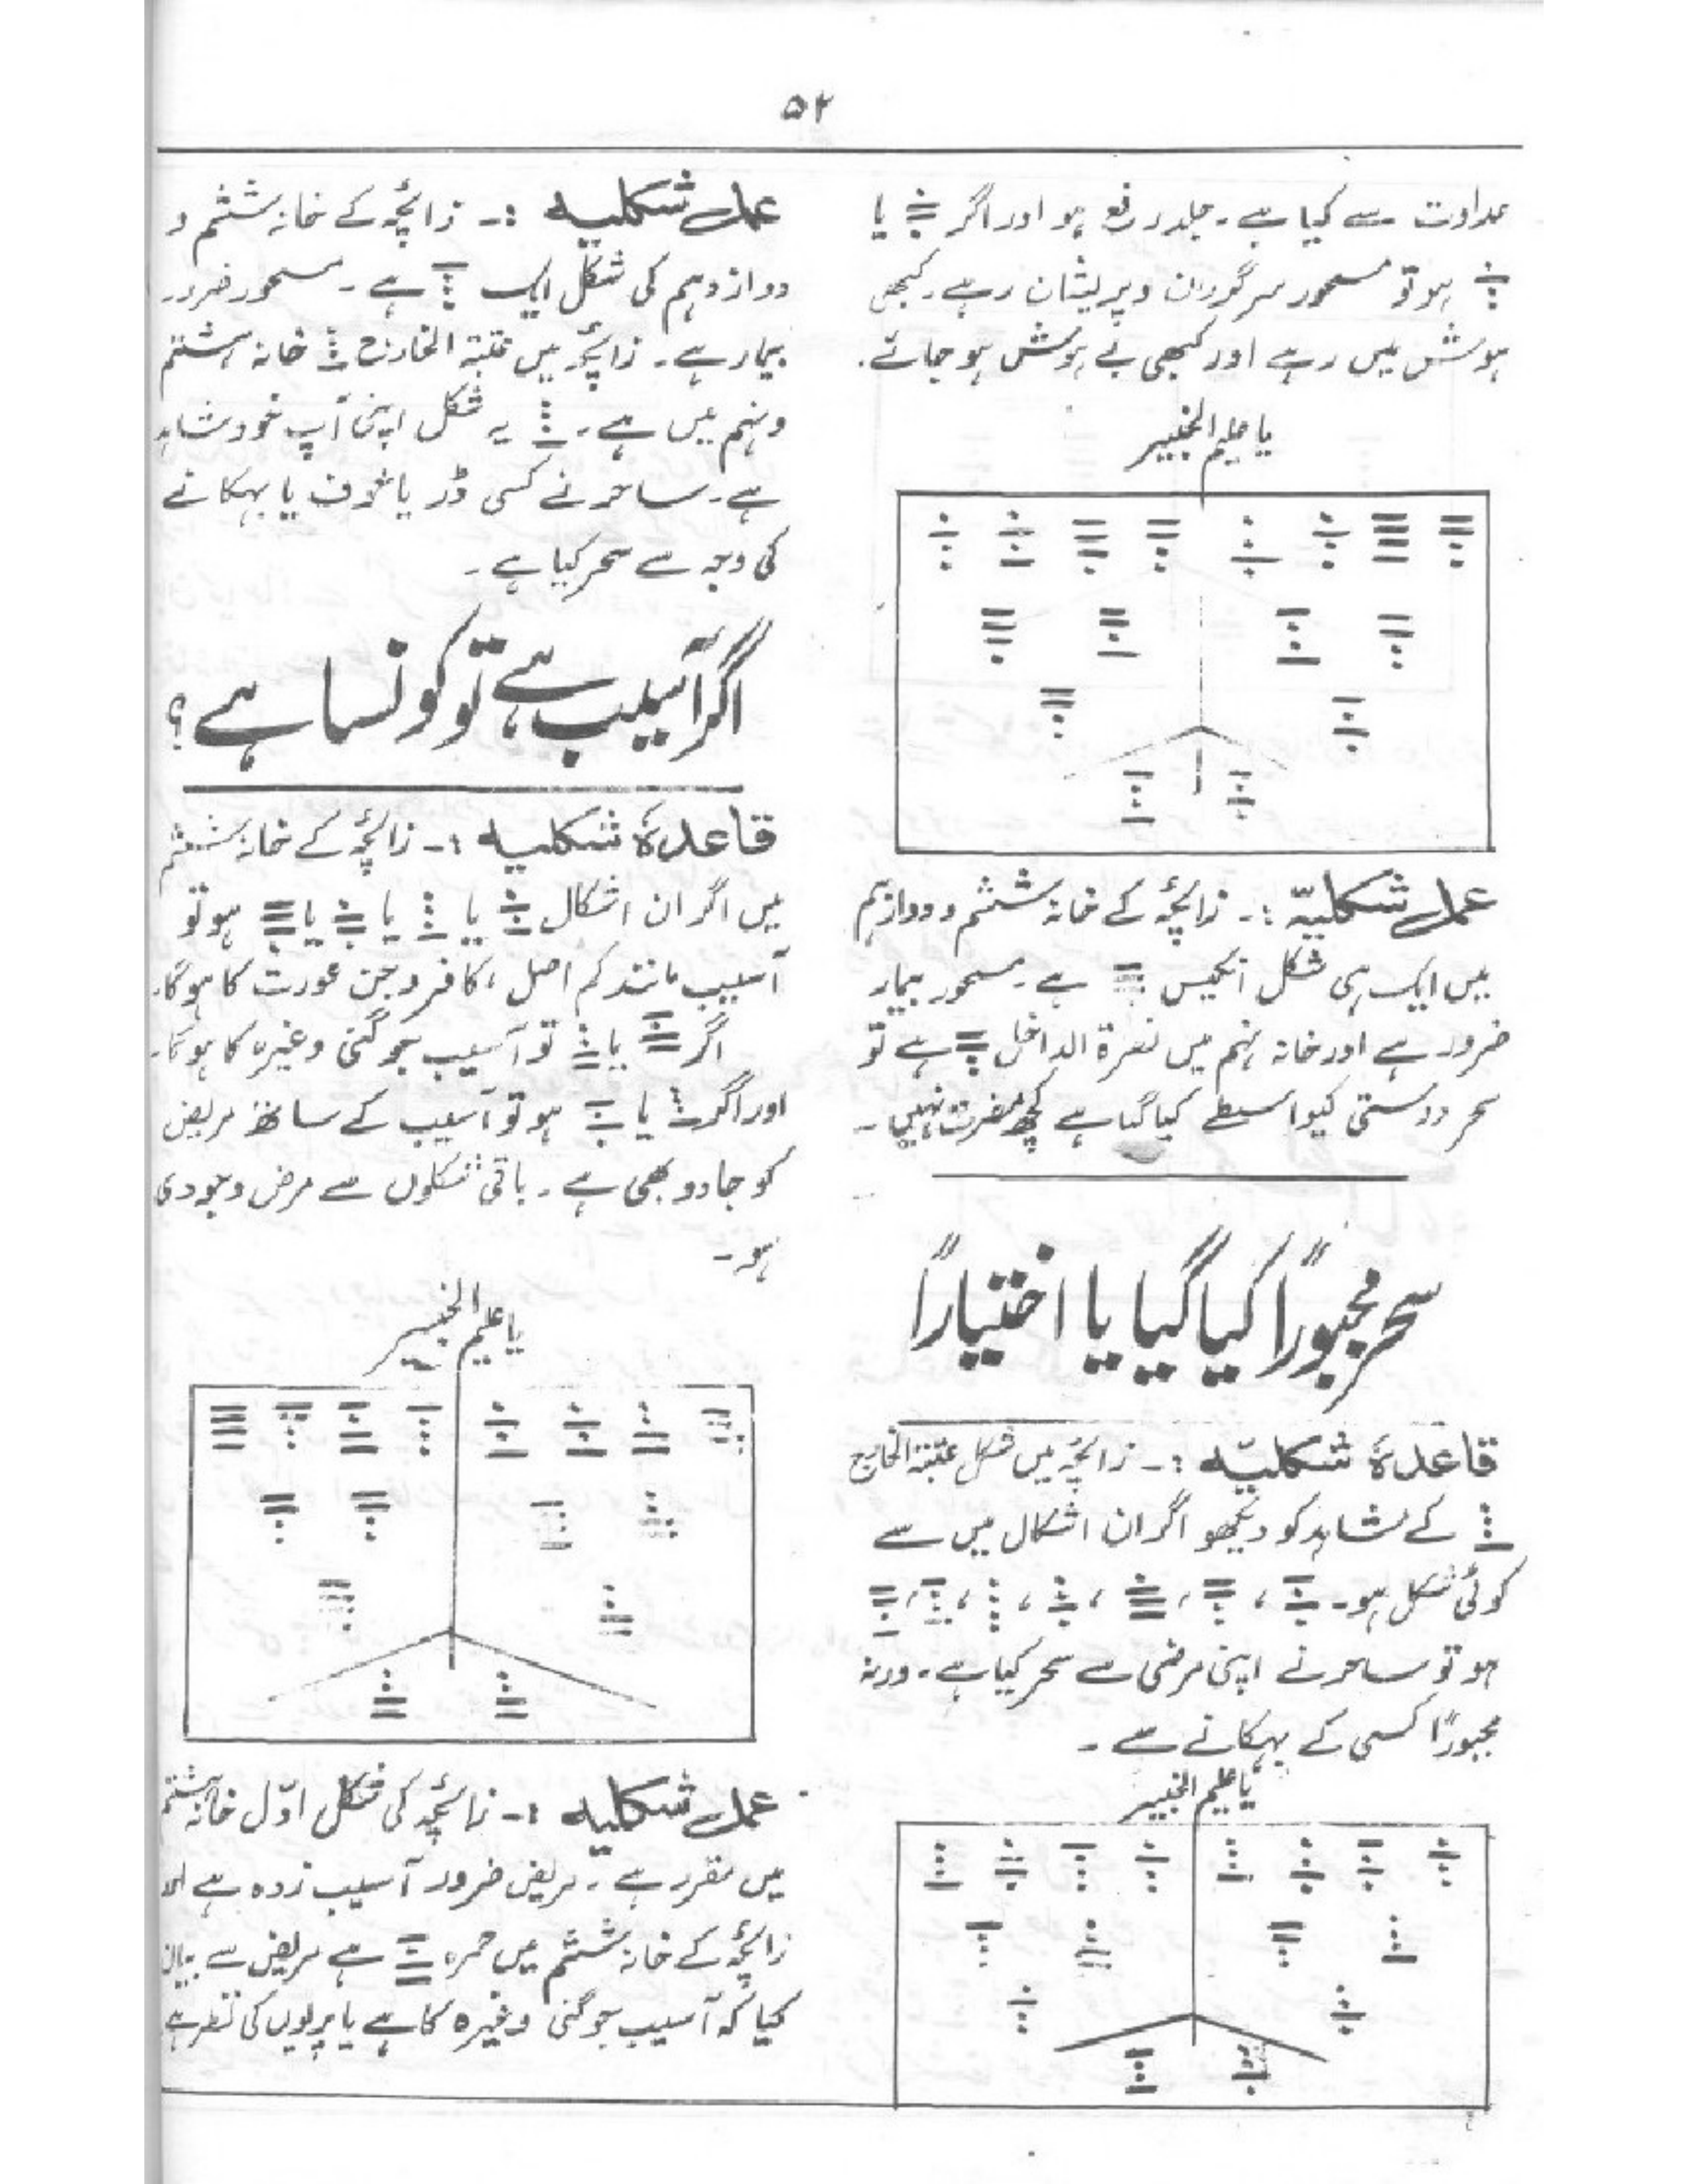 ۵۲
عداوت سے کیا ہے۔ جلد رفع ہو اور اگر یا
ہو تو مسحور سرگردان و پریشان رہے۔ کبھی
ہوش میں رہے اور کبھی بے ہوش ہو جائے۔
یا علیم الخبیر
عمل شکلیہ :۔ زائچہ کے خانہ ششم و دوازدہم
میں ایک ہی شکل انکیس ہے۔ مسحور بیمار
ضرور ہے اور خانہ نہم میں نصرۃ الداخل ہے تو
سحر دوستی کیواسطے کیا گیا ہے کچھ مضرت نہیں۔
سحر مجبوراً کیا گیا یا اختیاراً
قاعدۂ شکلیہ :۔ زائچہ میں شکل عتبۃ الخارج
کے شاہد کو دیکھو اگر ان اشکال میں سے
کوئی شکل ہو۔ ، ، ، ، ، ،
ہو تو ساحر نے اپنی مرضی سے سحر کیا ہے۔ ورنہ
مجبوراً کسی کے بہکانے سے ۔
یا علیم الخبیر
عمل شکلیہ :۔ زائچہ کے خانہ ششم و
دوازدہم کی شکل ایک ہے۔ مسحور ضرور
بیمار ہے۔ زائچہ میں عتبۃ الخارج خانہ ہشتم
و نہم میں ہے۔ یہ شکل اپنی آپ خود شاہد
ہے۔ ساحر نے کسی ڈر یا خوف یا بہکانے
کی وجہ سے سحر کیا ہے ۔
اگر آسیب ہے تو کونسا ہے؟
قاعدۂ شکلیہ :۔ زائچہ کے خانہ ششم
میں اگر ان اشکال یا یا یا ہو تو
آسیب مانند کم اصل ، کافر و جن عورت کا ہوگا۔
اگر یا تو آسیب جوگنی وغیرہ کا ہوگا۔
اور اگر یا ہو تو آسیب کے ساتھ مریض
کو جادو بھی ہے ۔ باقی شکلوں سے مرض وجودی
ہو۔
یا علیم الخبیر
عمل شکلیہ :۔ زائچہ کی شکل اوّل خانہ ہشتم
میں مقرر ہے ۔ مریض ضرور آسیب زدہ ہے
زائچہ کے خانہ ششم میں حمرہ ہے مریض سے بیان
کیا کہ آسیب جوگنی وغیرہ کا ہے یا پریوں کی نظر ہے